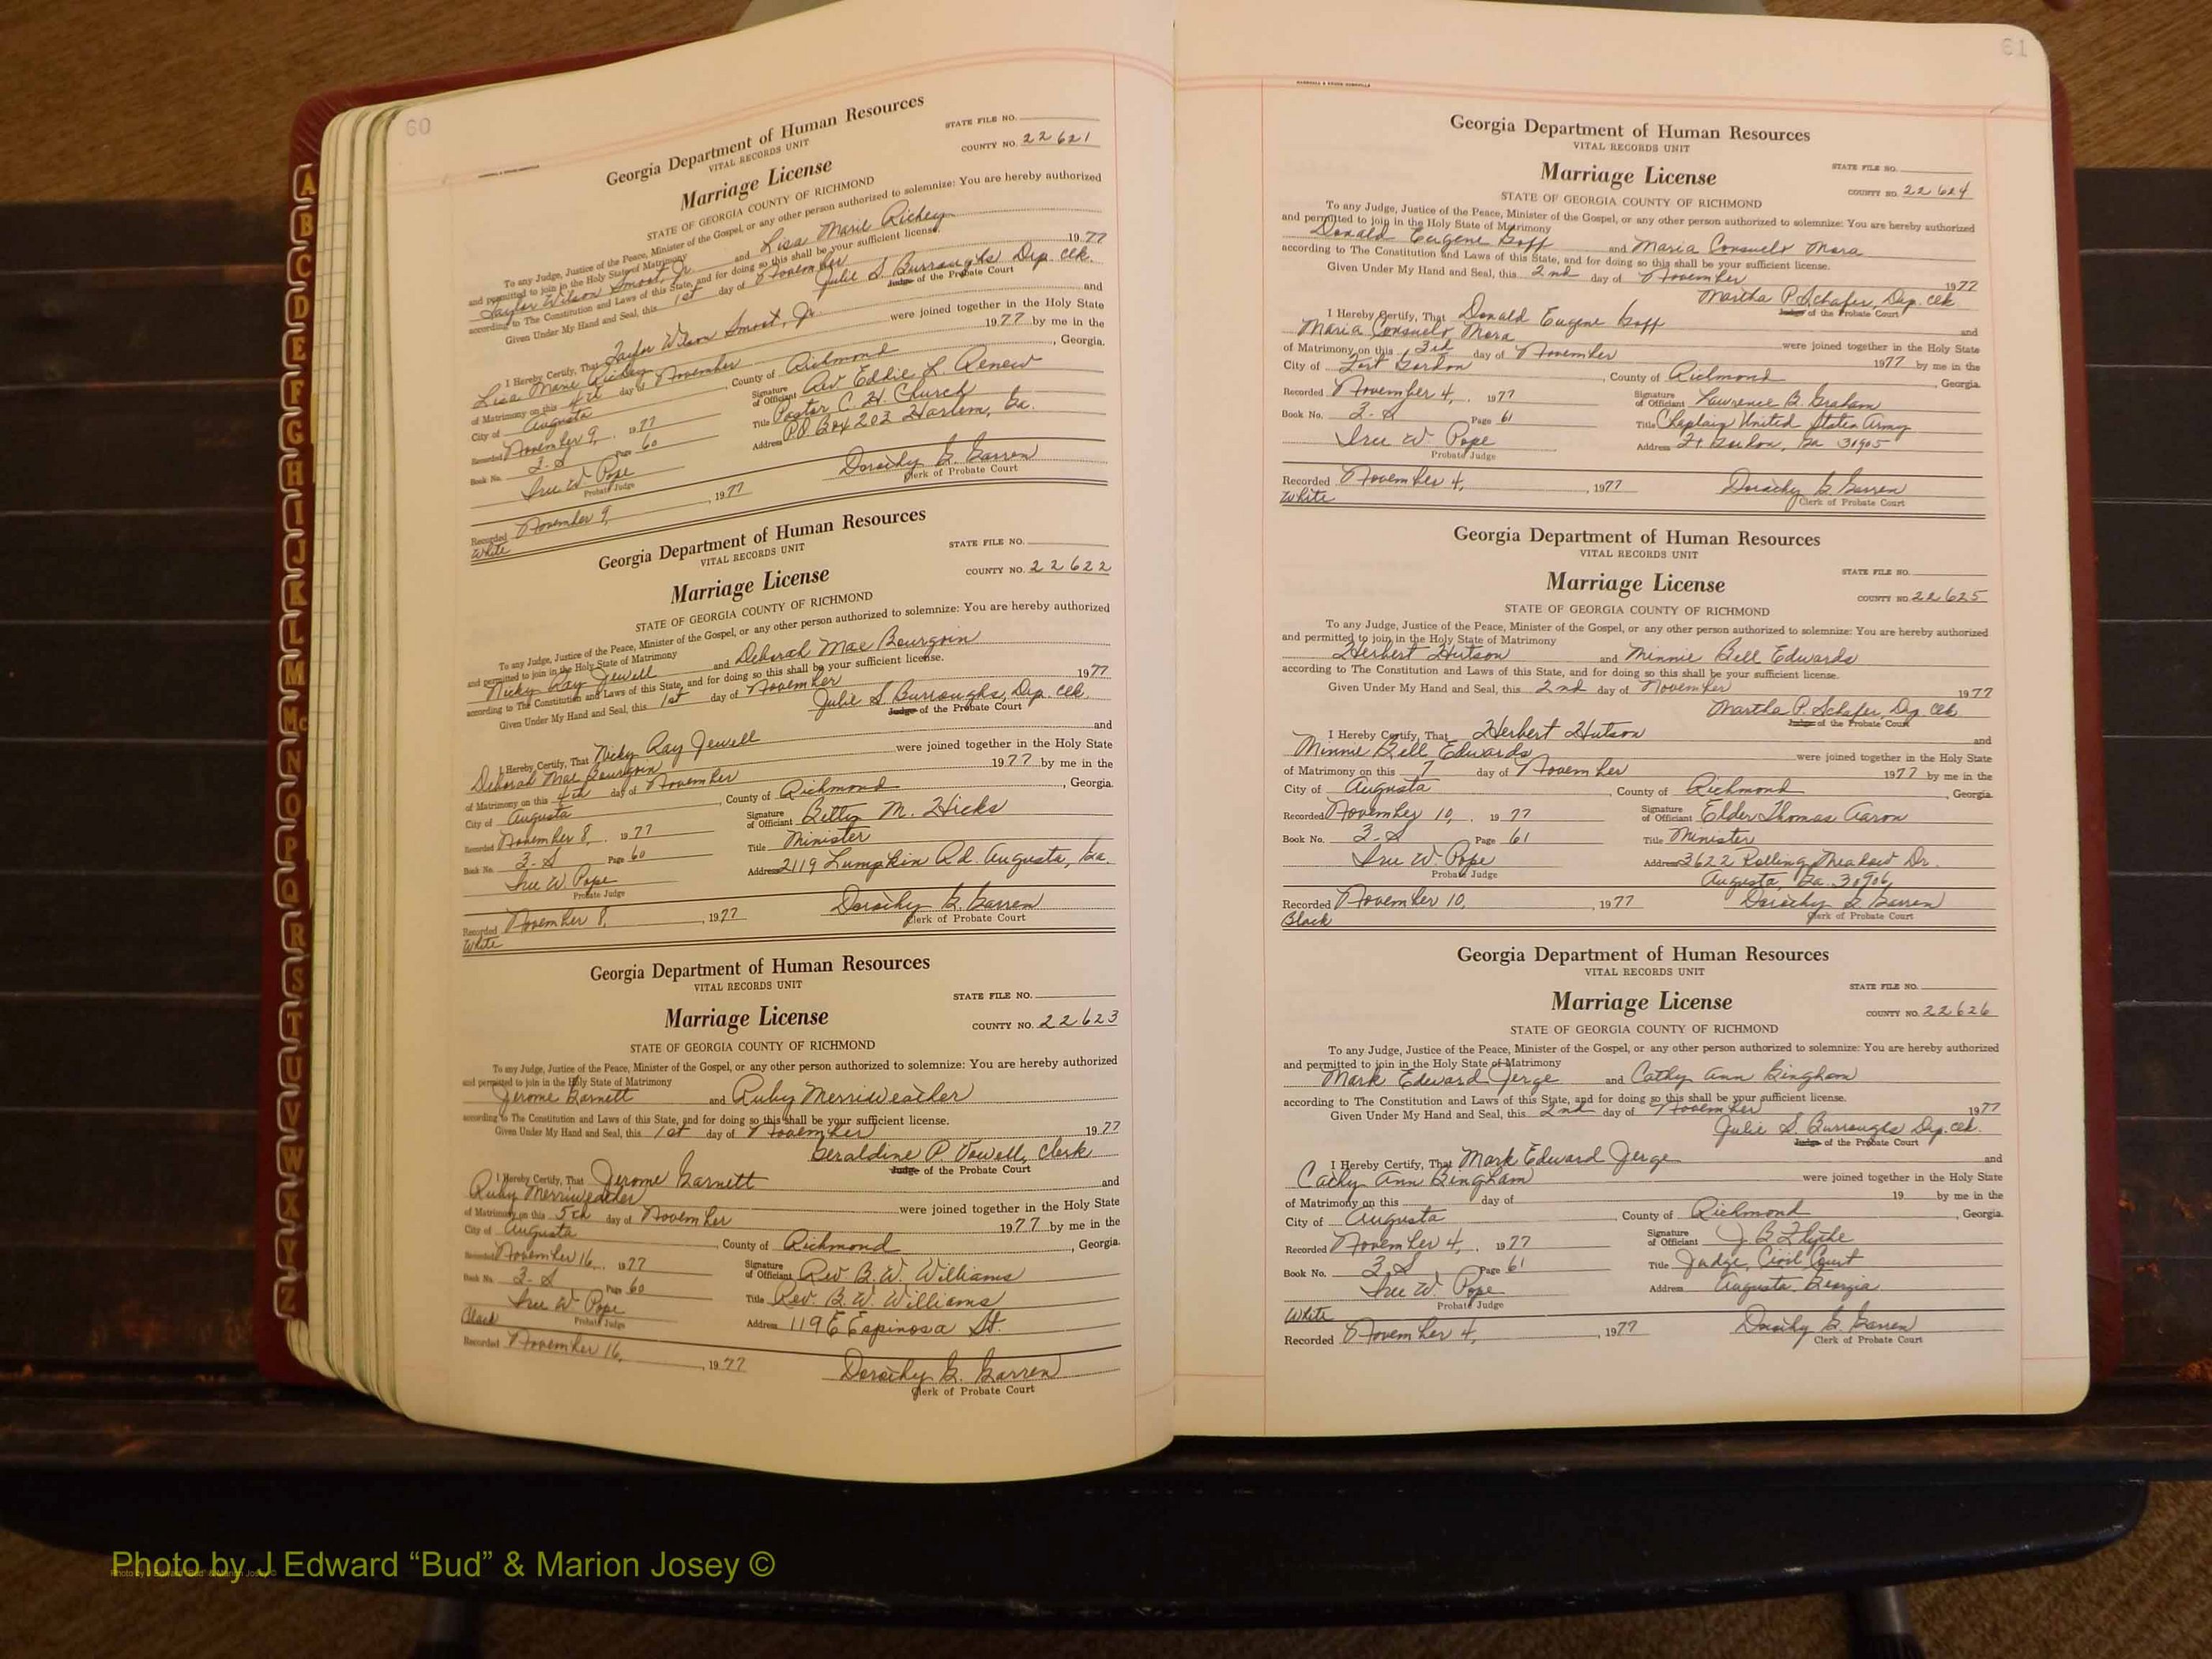 60
Georgia Department of Human Resources
VITAL RECORDS UNIT
STATE FILE NO.
Marriage License
COUNTY NO. 22621
STATE OF GEORGIA COUNTY OF RICHMOND
To any Judge, Justice of the Peace, Minister of the Gospel, or any other person authorized to solemnize: You are hereby authorized
and permitted to join in the Holy State of Matrimony
Taylor Wilson Smoot, Jr. and Lisa Marie Richey
according to The Constitution and Laws of this State, and for doing so this shall be your sufficient license.
Given Under My Hand and Seal, this 1st day of November 1977
Julie S Burroughs Dep. Clk.
Judge of the Probate Court
I Hereby Certify, That Taylor Wilson Smoot, Jr and
Lisa Marie Richey were joined together in the Holy State
of Matrimony on this 4th day of November 1977 by me in the
City of Augusta, County of Richmond, Georgia.
Recorded November 9, 1977 Signature of Officiant Rev Eddie L. Renew
Book No. 3-S Page 60 Title Pastor, C. H. Church
Iree W. Pope Address P.O Box 203 Harlem, Ga.
Probate Judge
Dorothy G. Garren
Clerk of Probate Court
Recorded November 9, 1977
White
Georgia Department of Human Resources
VITAL RECORDS UNIT
STATE FILE NO.
Marriage License
COUNTY NO. 22622
STATE OF GEORGIA COUNTY OF RICHMOND
To any Judge, Justice of the Peace, Minister of the Gospel, or any other person authorized to solemnize: You are hereby authorized
and permitted to join in the Holy State of Matrimony
Nicky Ray Jewell and Deborah Mae Bourgoin
according to The Constitution and Laws of this State, and for doing so this shall be your sufficient license.
Given Under My Hand and Seal, this 1st day of November 1977
Julie S. Burroughs, Dep. Clk.
Judge of the Probate Court
I Hereby Certify, That Nicky Ray Jewell and
Deborah Mae Bourgoin were joined together in the Holy State
of Matrimony on this 4th day of November 1977 by me in the
City of Augusta, County of Richmond, Georgia.
Recorded November 8, 1977 Signature of Officiant Betty M. Hicks
Book No. 3-S Page 60 Title Minister
Iree W. Pope Address 2119 Lumpkin Rd. Augusta, Ga.
Probate Judge
Recorded November 8, 1977 Dorothy G. Garren
White Clerk of Probate Court
Georgia Department of Human Resources
VITAL RECORDS UNIT
STATE FILE NO.
Marriage License
COUNTY NO. 22623
STATE OF GEORGIA COUNTY OF RICHMOND
To any Judge, Justice of the Peace, Minister of the Gospel, or any other person authorized to solemnize: You are hereby authorized
and permitted to join in the Holy State of Matrimony
Jerome Barnett and Ruby Merriweather
according to The Constitution and Laws of this State, and for doing so this shall be your sufficient license.
Given Under My Hand and Seal, this 1st day of November 1977
Geraldine P. Vowell, Clerk
Judge of the Probate Court
I Hereby Certify, That Jerome Barnett and
Ruby Merriweather were joined together in the Holy State
of Matrimony on this 5th day of November 1977 by me in the
City of Augusta, County of Richmond, Georgia.
Recorded November 16, 1977 Signature of Officiant Rev. B. W. Williams
Book No. 3-S Page 60 Title Rev. B. W. Williams
Iree W. Pope Address 119 E Espinosa St.
Black Probate Judge
Recorded November 16, 1977 Dorothy G. Garren
Clerk of Probate Court
61
Georgia Department of Human Resources
VITAL RECORDS UNIT
STATE FILE NO.
Marriage License
COUNTY NO. 22624
STATE OF GEORGIA COUNTY OF RICHMOND
To any Judge, Justice of the Peace, Minister of the Gospel, or any other person authorized to solemnize: You are hereby authorized
and permitted to join in the Holy State of Matrimony
Donald Eugene Goff and Maria Consuelo Mora
according to The Constitution and Laws of this State, and for doing so this shall be your sufficient license.
Given Under My Hand and Seal, this 2nd day of November 1977
Martha P. Schafer, Dep. Clk
Judge of the Probate Court
I Hereby Certify, That Donald Eugene Goff and
Maria Consuelo Mora were joined together in the Holy State
of Matrimony on this 3rd day of November 1977 by me in the
City of Fort Gordon, County of Richmond, Georgia.
Recorded November 4, 1977 Signature of Officiant Lawrence B. Graham
Book No. 3-S Page 61 Title Chaplain United States Army
Iree W Pope Address Ft. Gordon, Ga 30905
Probate Judge
Recorded November 4, 1977 Dorothy G Garren
White Clerk of Probate Court
Georgia Department of Human Resources
VITAL RECORDS UNIT
STATE FILE NO.
Marriage License
COUNTY NO. 22625
STATE OF GEORGIA COUNTY OF RICHMOND
To any Judge, Justice of the Peace, Minister of the Gospel, or any other person authorized to solemnize: You are hereby authorized
and permitted to join in the Holy State of Matrimony
Herbert Hutson and Minnie Bell Edwards
according to The Constitution and Laws of this State, and for doing so this shall be your sufficient license.
Given Under My Hand and Seal, this 2nd day of November 1977
Martha P. Schafer, Dep. Clk
Judge of the Probate Court
I Hereby Certify, That Herbert Hutson and
Minnie Bell Edwards were joined together in the Holy State
of Matrimony on this 7 day of November 1977 by me in the
City of Augusta, County of Richmond, Georgia.
Recorded November 10, 1977 Signature of Officiant Elder Thomas Aaron
Book No. 3-S Page 61 Title Minister
Iree W. Pope Address 3622 Rolling Meadow Dr.
Probate Judge Augusta, Ga. 30906
Recorded November 10, 1977 Dorothy G. Garren
Black Clerk of Probate Court
Georgia Department of Human Resources
VITAL RECORDS UNIT
STATE FILE NO.
Marriage License
COUNTY NO. 22626
STATE OF GEORGIA COUNTY OF RICHMOND
To any Judge, Justice of the Peace, Minister of the Gospel, or any other person authorized to solemnize: You are hereby authorized
and permitted to join in the Holy State of Matrimony
Mark Edward Jerge and Cathy Ann Bingham
according to The Constitution and Laws of this State, and for doing so this shall be your sufficient license.
Given Under My Hand and Seal, this 2nd day of November 1977
Julie S. Burroughs Dep. Clk.
Judge of the Probate Court
I Hereby Certify, That Mark Edward Jerge and
Cathy Ann Bingham were joined together in the Holy State
of Matrimony on this day of 19 by me in the
City of Augusta, County of Richmond, Georgia.
Recorded November 4, 1977 Signature of Officiant J. B Flythe
Book No. 3-S Page 61 Title Judge, Civil Court
Iree W. Pope Address Augusta, Georgia
White Probate Judge
Recorded November 4, 1977 Dorothy G. Garren
Clerk of Probate Court
A
B
C
D
E
F
G
H
I
J
K
L
M
Mc
N
O
P
Q
R
S
T
U
V
W
X
Y
Z
Photo by J Edward “Bud” & Marion Josey ©
Photo by J Edward “Bud” & Marion Josey ©